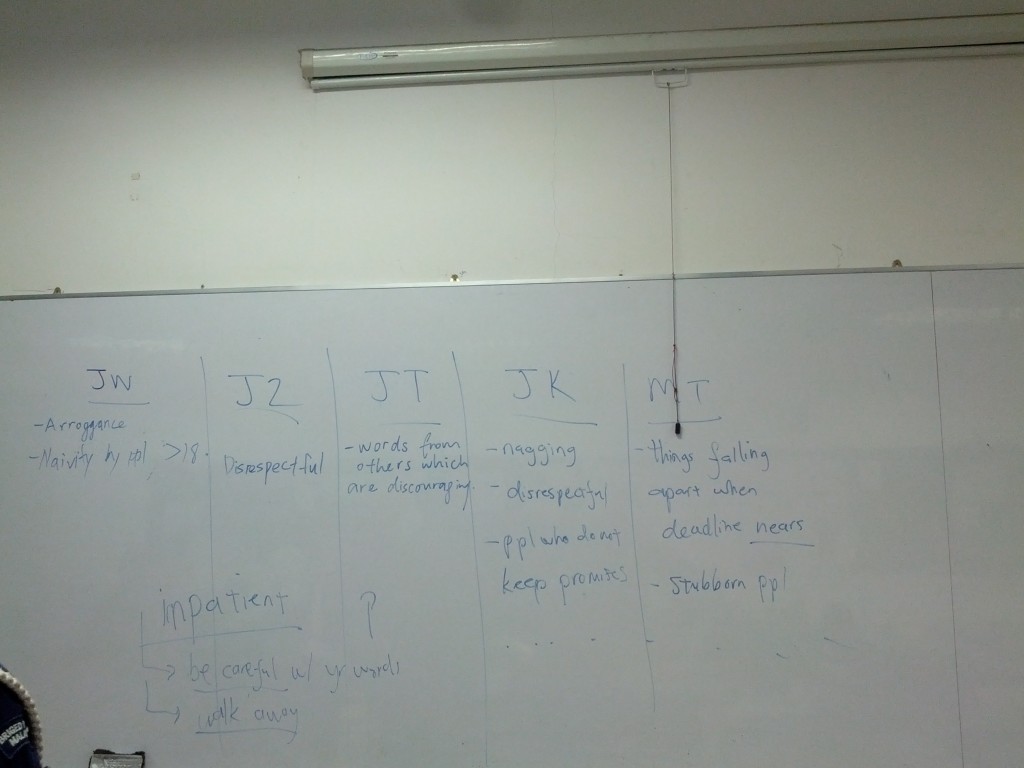 JW
-Arroggance
-Naivity by ppl >18.
JZ
Disrespectful
JT
-words from
others which
are discouraging.
JK
-nagging
-disrespectful
-ppl who do not
keep promises
MT
-things falling
apart when
deadline nears
-Stubborn ppl
inpatient ?
be careful w/ yr words
walk away